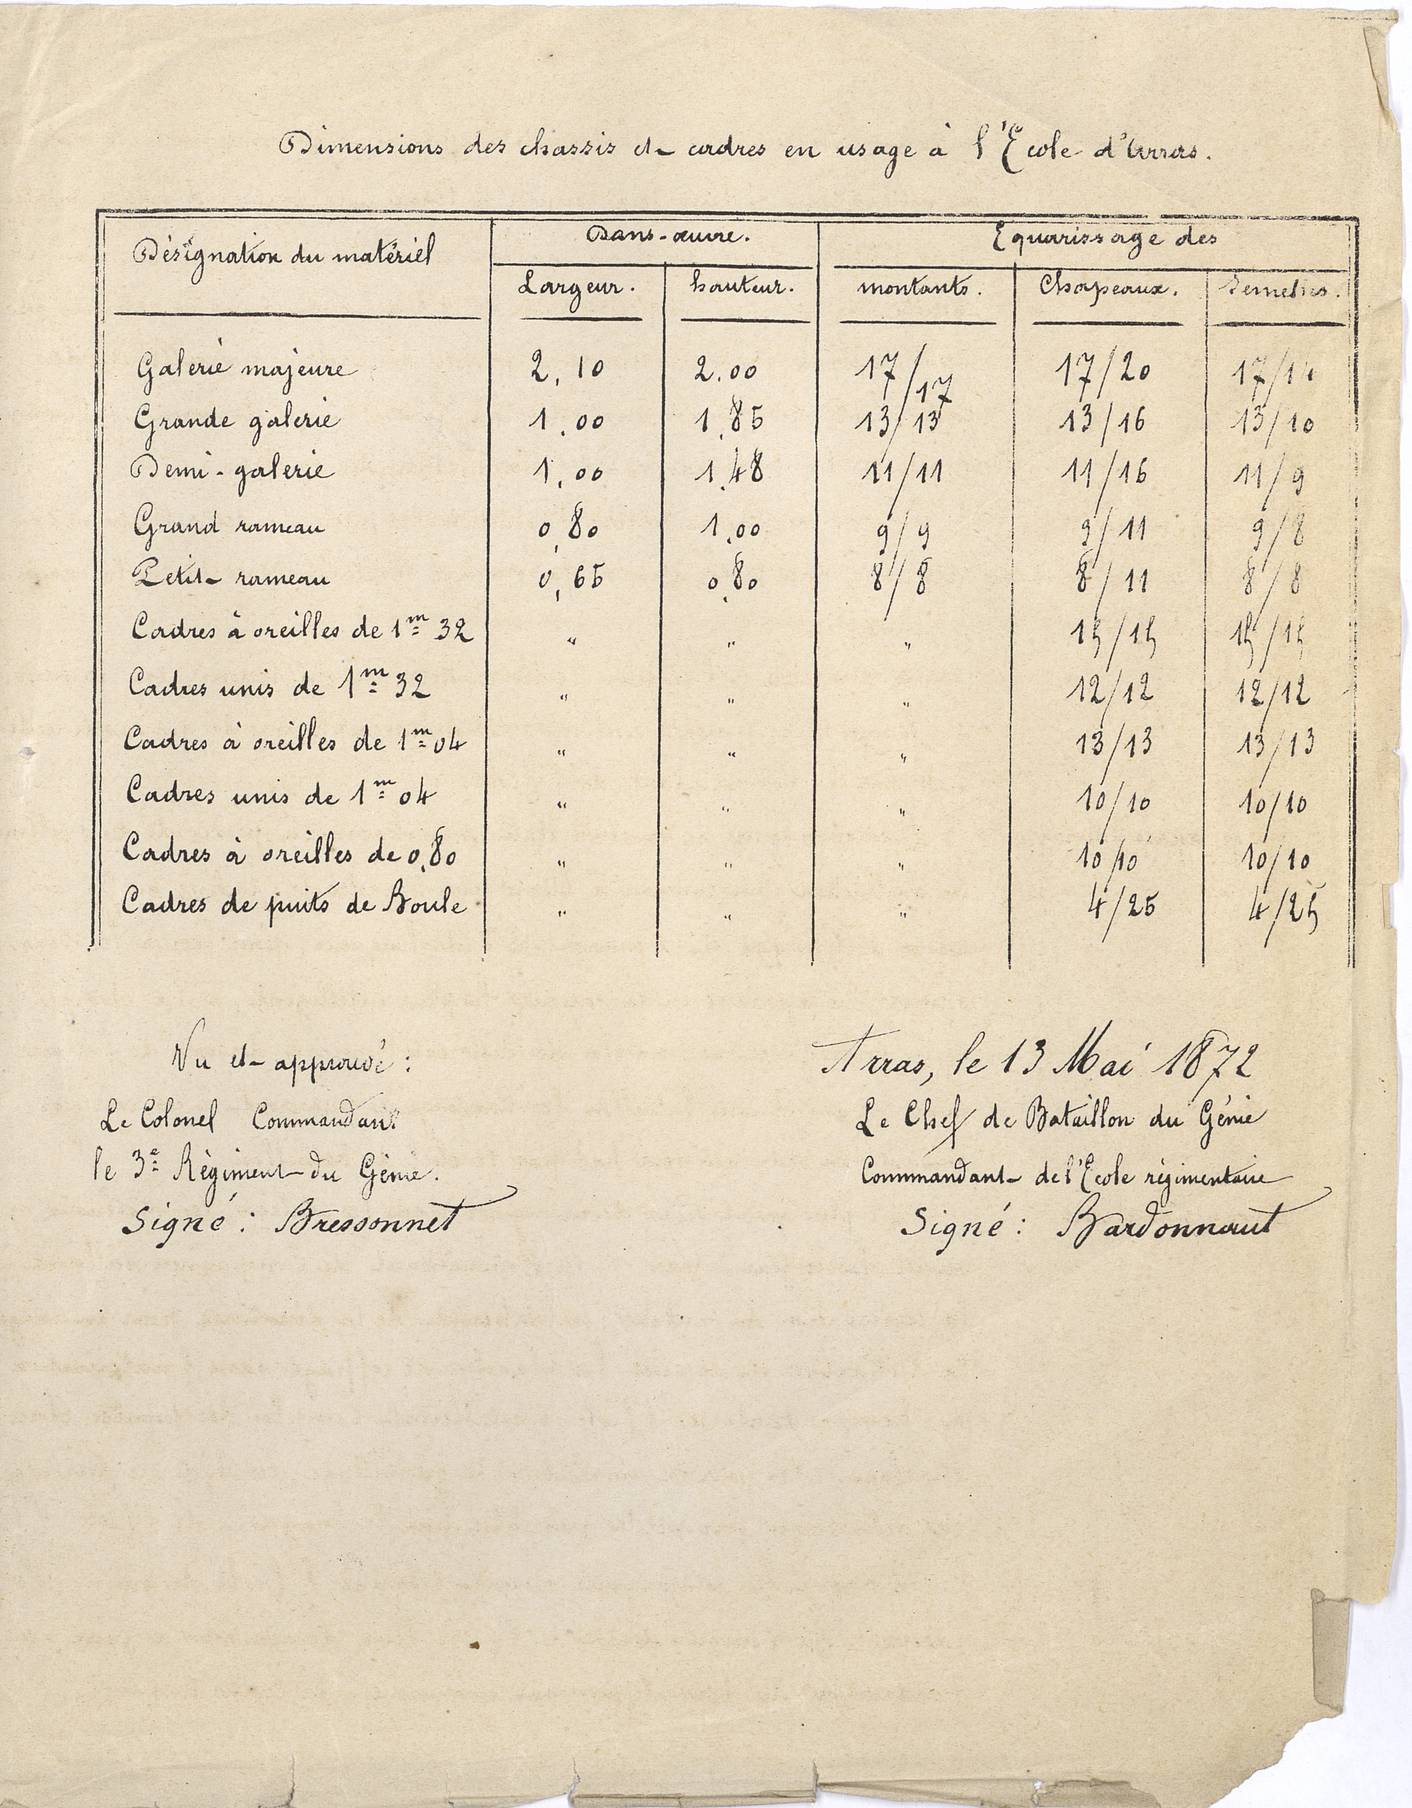 Dimensions des chassis et cadres en usage à l'Ecole d'Arras.
Désignation du matériel Dans-œuvre. Equarissage des
Largeur. hauteur. montants. Chapeaux. Semelles.
Galerie majeure 2,10 2.00 17/17 17/20 17/14
Grande galerie 1,00 1,85 13/13 13/16 13/10
Demi-galerie 1,00 1,48 11/11 11/16 11/9
Grand rameau 0,80 1,00 9/9 9/11 9/8
Petit rameau 0,65 0,80 8/8 8/11 8/8
Cadres à oreilles de 1m 32 " " " 15/15 15/15
Cadres unis de 1m 32 " " " 12/12 12/12
Cadres à oreilles de 1m 04 " " " 13/13 13/13
Cadres unis de 1m 04 " " " 10/10 10/10
Cadres à oreilles de 0,80 " " " 10/10 10/10
Cadres de puits de Boule " " " 4/25 4/25
Vu et approuvé :
Le Colonel Commandant
le 3e Régiment du Génie.
Signé : Bressonnet
Arras, le 13 Mai 1872
Le Chef de Bataillon du Génie
Commandant de l'Ecole régimentaire
Signé : Bardonnaut